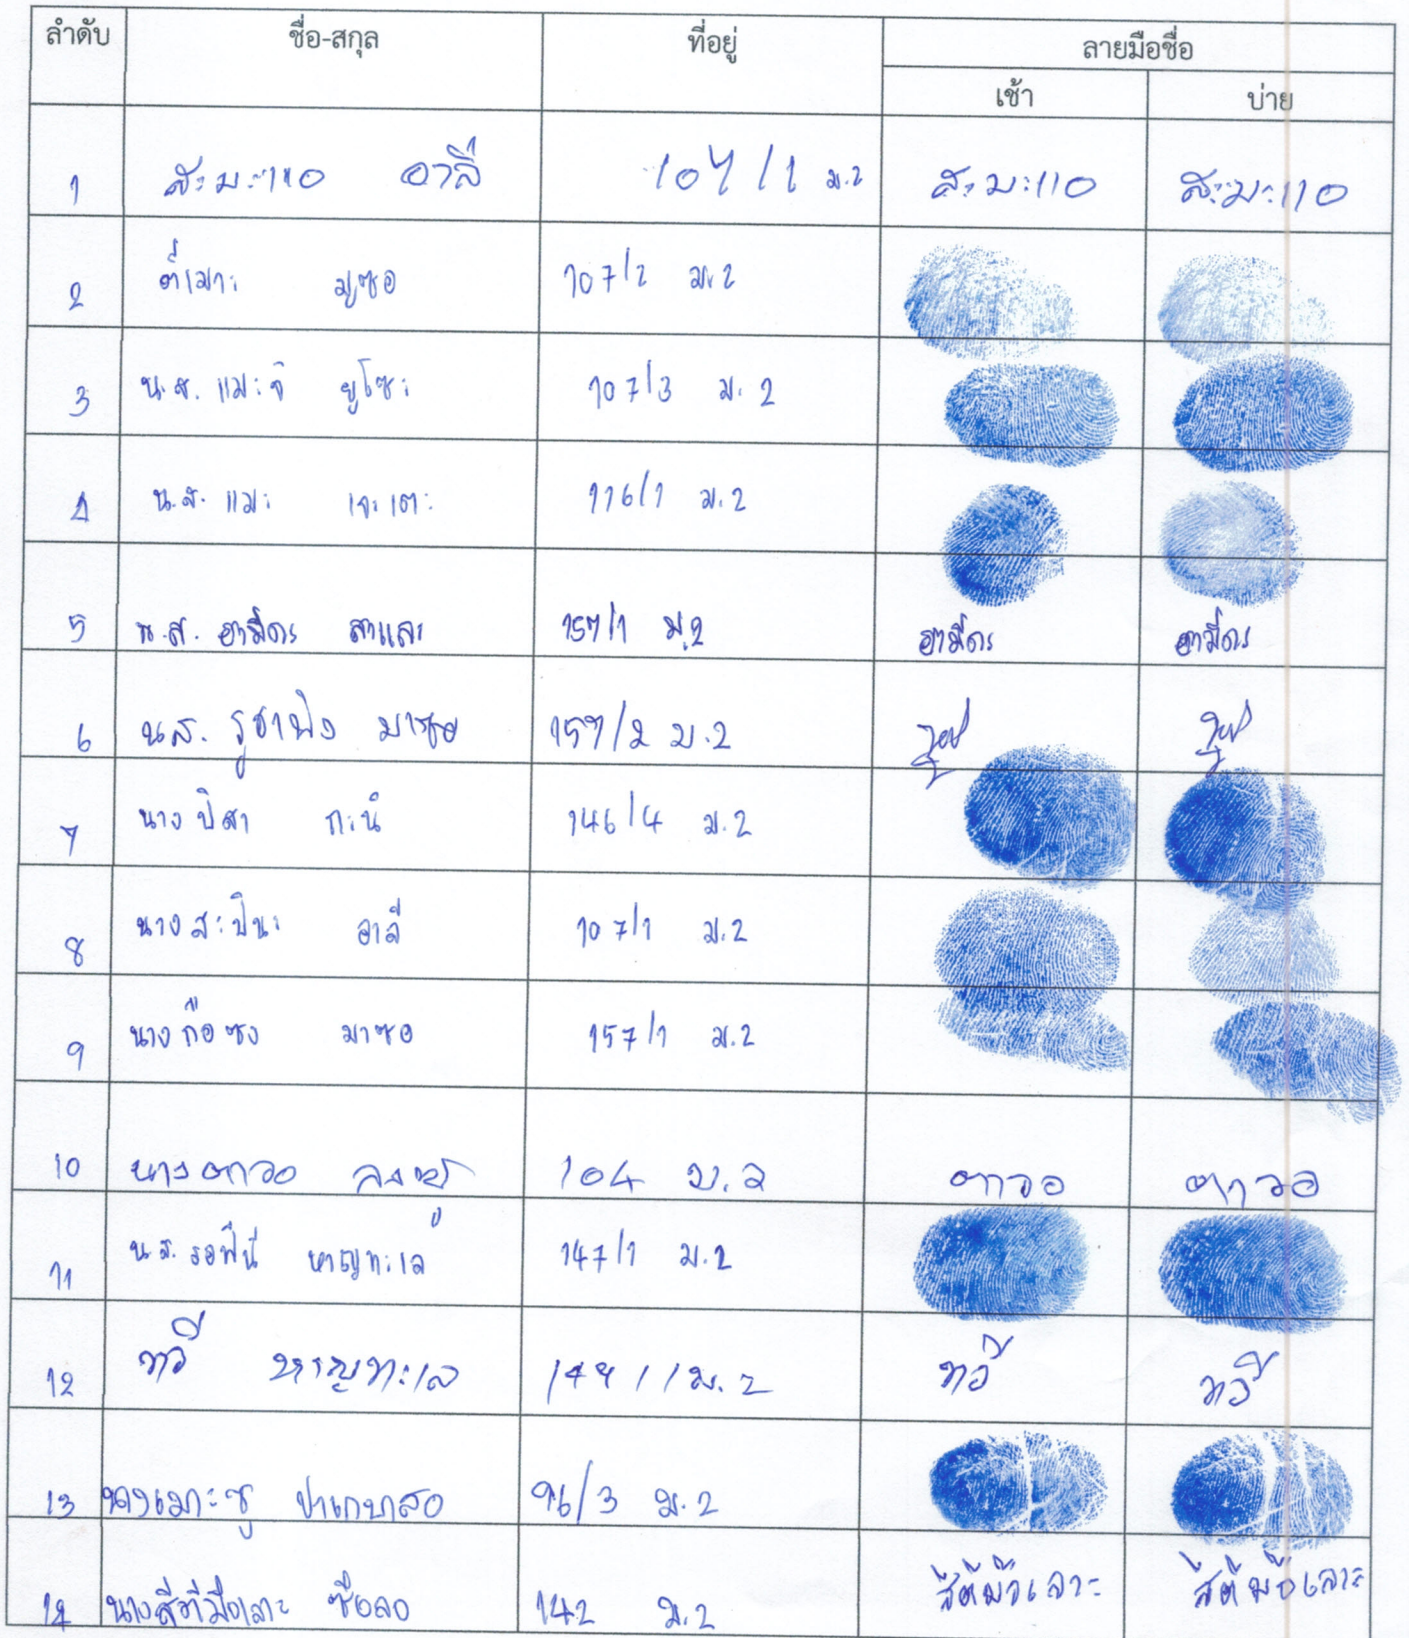 ลำดับ ชื่อ-สกุล ที่อยู่ ลายมือชื่อ
เช้า บ่าย
1 สะมะแอ อาลี 107/1 ม.2 สะมะแอ สะมะแอ
2 ตีเมาะ มูซอ 107/2 ม.2
3 น.ส. แมะจิ ยูโซะ 107/3 ม.2
4 น.ส. แมะ เจะเตะ 116/1 ม.2
5 น.ส. ฮามีดะ สาและ 157/1 ม.2 ฮามีดะ ฮามีดะ
6 น.ส. มาซอ 157/2 ม.2
7 นาง กะนิ 146/4 ม.2
8 นางสะปีนะ อาลี 107/1 ม.2
9 นางก๊อซง มาซอ 157/1 ม.2
10 นาง 104 ม.2
11 น.ส. รอฟีนี หาญทะเล 147/1 ม.2
12 ทวี หาญทะเล 147/1 ม.2 ทวี ทวี
13 นางเมาะซู ปาเกบาสอ 96/3 ม.2
14 นางสีตีมือเลาะ ซือลอ 142 ม.2 สีตีมือเลาะ สีตีมือเลาะ